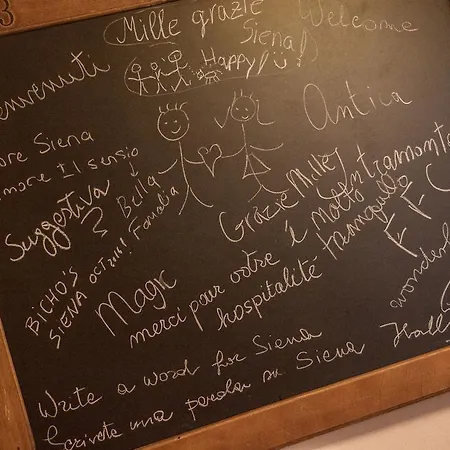 3
Mille grazie
Siena!
Welcome
Happy!
envenuti
Antica
ore Siena
more Il sensio
Suggestiva
Bella
Famalia
Grazie Mille
Contramonte
è molto
tranquillo
BICHO'S
SIENA OCT 2014!
Magic
merci pour votre
hospitalité
wonderful
Write a word for Siena
Scrivete una parola su Siena